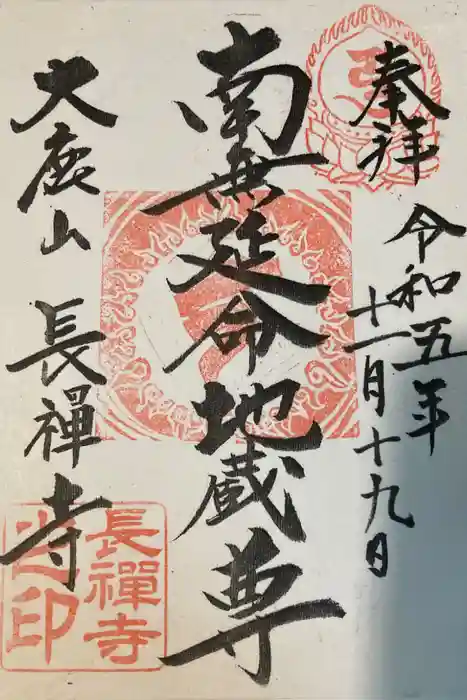 奉拝
令和五年
十一月十九日
南無延命地蔵尊
大鹿山 長禅寺
長禪寺